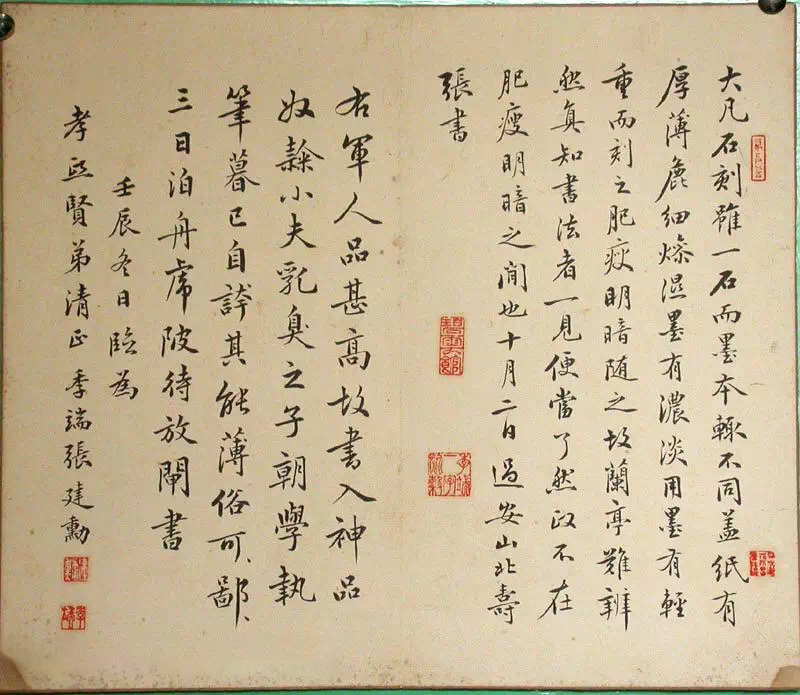 大凡石刻雖一石而墨本輒不同盖紙有
厚薄麁細燥濕墨有濃淡用墨有輕
重而刻之肥瘦明暗随之故蘭亭難辨
然真知書法者一見便當了然正不在
肥瘦明暗之間也十月二日過安山北壽
張書
右軍人品甚高故書入神品
奴隸小夫乳臭之子朝學執
筆暮已自誇其能薄俗可鄙
三日泊舟虎陂待放閘書
壬辰冬日臨為
孝丞賢弟清正季端張建勳